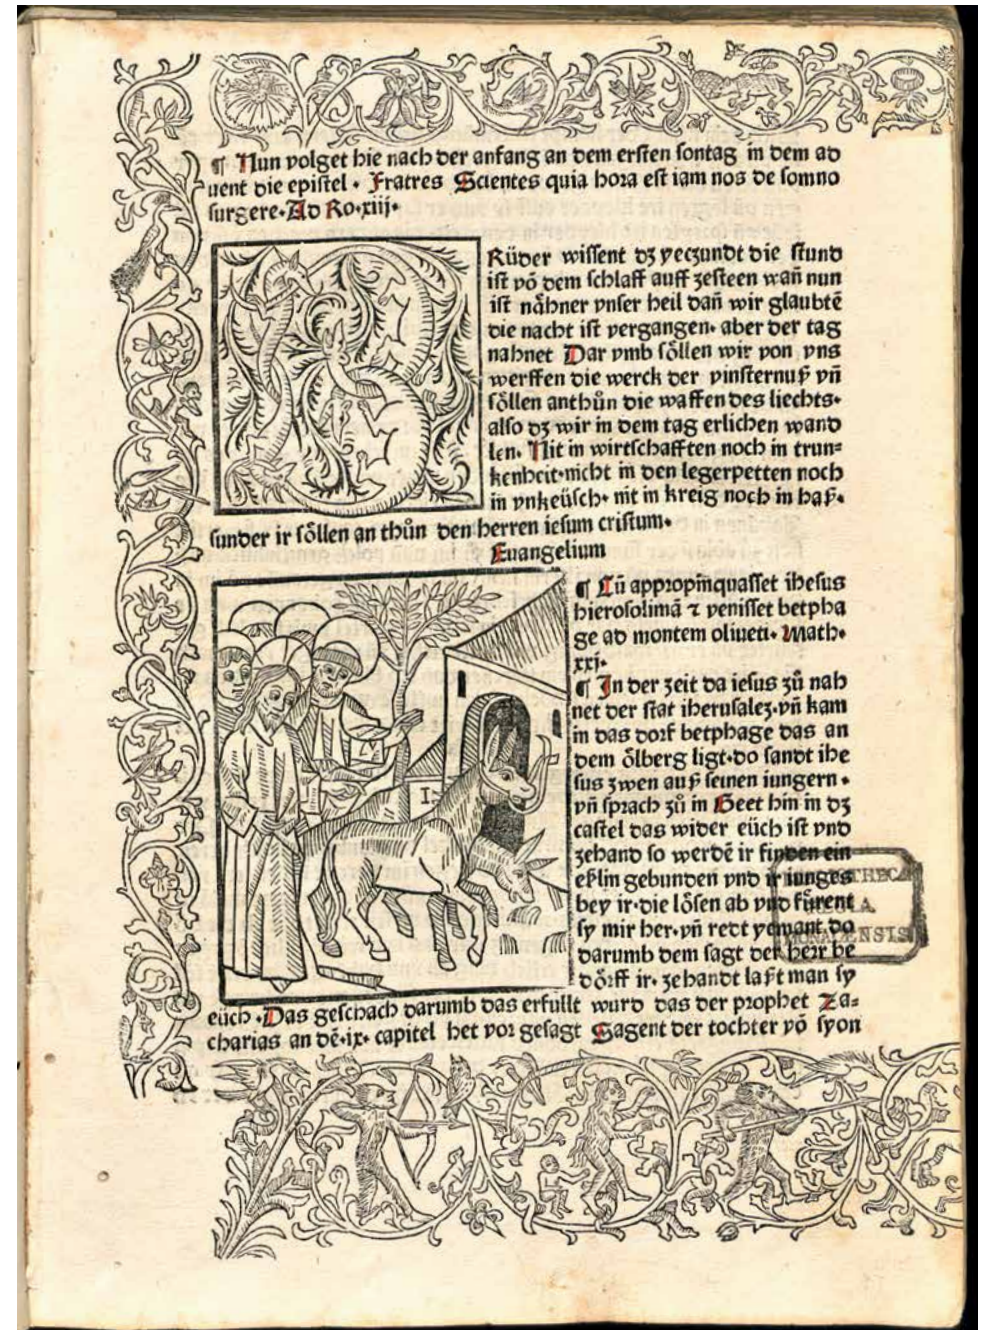 ¶ Nun volget hie nach der anfang an dem ersten sontag in dem ad
uent die epistel · Fratres Scientes quia hora est iam nos de somno
surgere · Ad Ro · xiij ·
B
Rüder wissent dz yeczundt die stund
ist võ dem schlaff auff zesteen wañ nun
ist nåhner vnser heil dañ wir glaubtẽ
die nacht ist vergangen · aber der tag
nahnet Dar vmb söllen wir von vns
werffen die werck der vinsternuß vñ
söllen anthůn die waffen des liechts ·
also dz wir in dem tag erlichen wand
len · Nit in wirtschafften noch in trun=
kenheit · nicht in den legerpetten noch
in vnkeüsch · nit in kreig noch in haß ·
sunder ir söllen an thůn den herren iesum cristum ·
Euangelium
¶ Cũ appropinquasset ihesus
hierosolimã ⁊ venisset betpha
ge ad montem oliueti · Math ·
xxj ·
¶ In der zeit da iesus zů nah
net der stat iherusalez · vñ kam
in das dorf betphage das an
dem ölberg ligt · do sandt ihe
sus zwen auß seinen iungern ·
vñ sprach zů in Geet hin in dz
castel das wider eüch ist vnd
zehand so werdẽ ir finden ein
eßlin gebunden vnd ir iunges
bey ir · die lösen ab vnd fůrent
sy mir her · vñ redt yemant do
darumb dem sagt der herr be
dörff ir · zehandt laßt man sy
eüch · Das geschach darumb das erfüllt wurd das der prophet Za=
charias an dẽ · ix · capitel het vor gesagt Sagent der tochter võ syon
THECA
REGIA
MONACENSIS